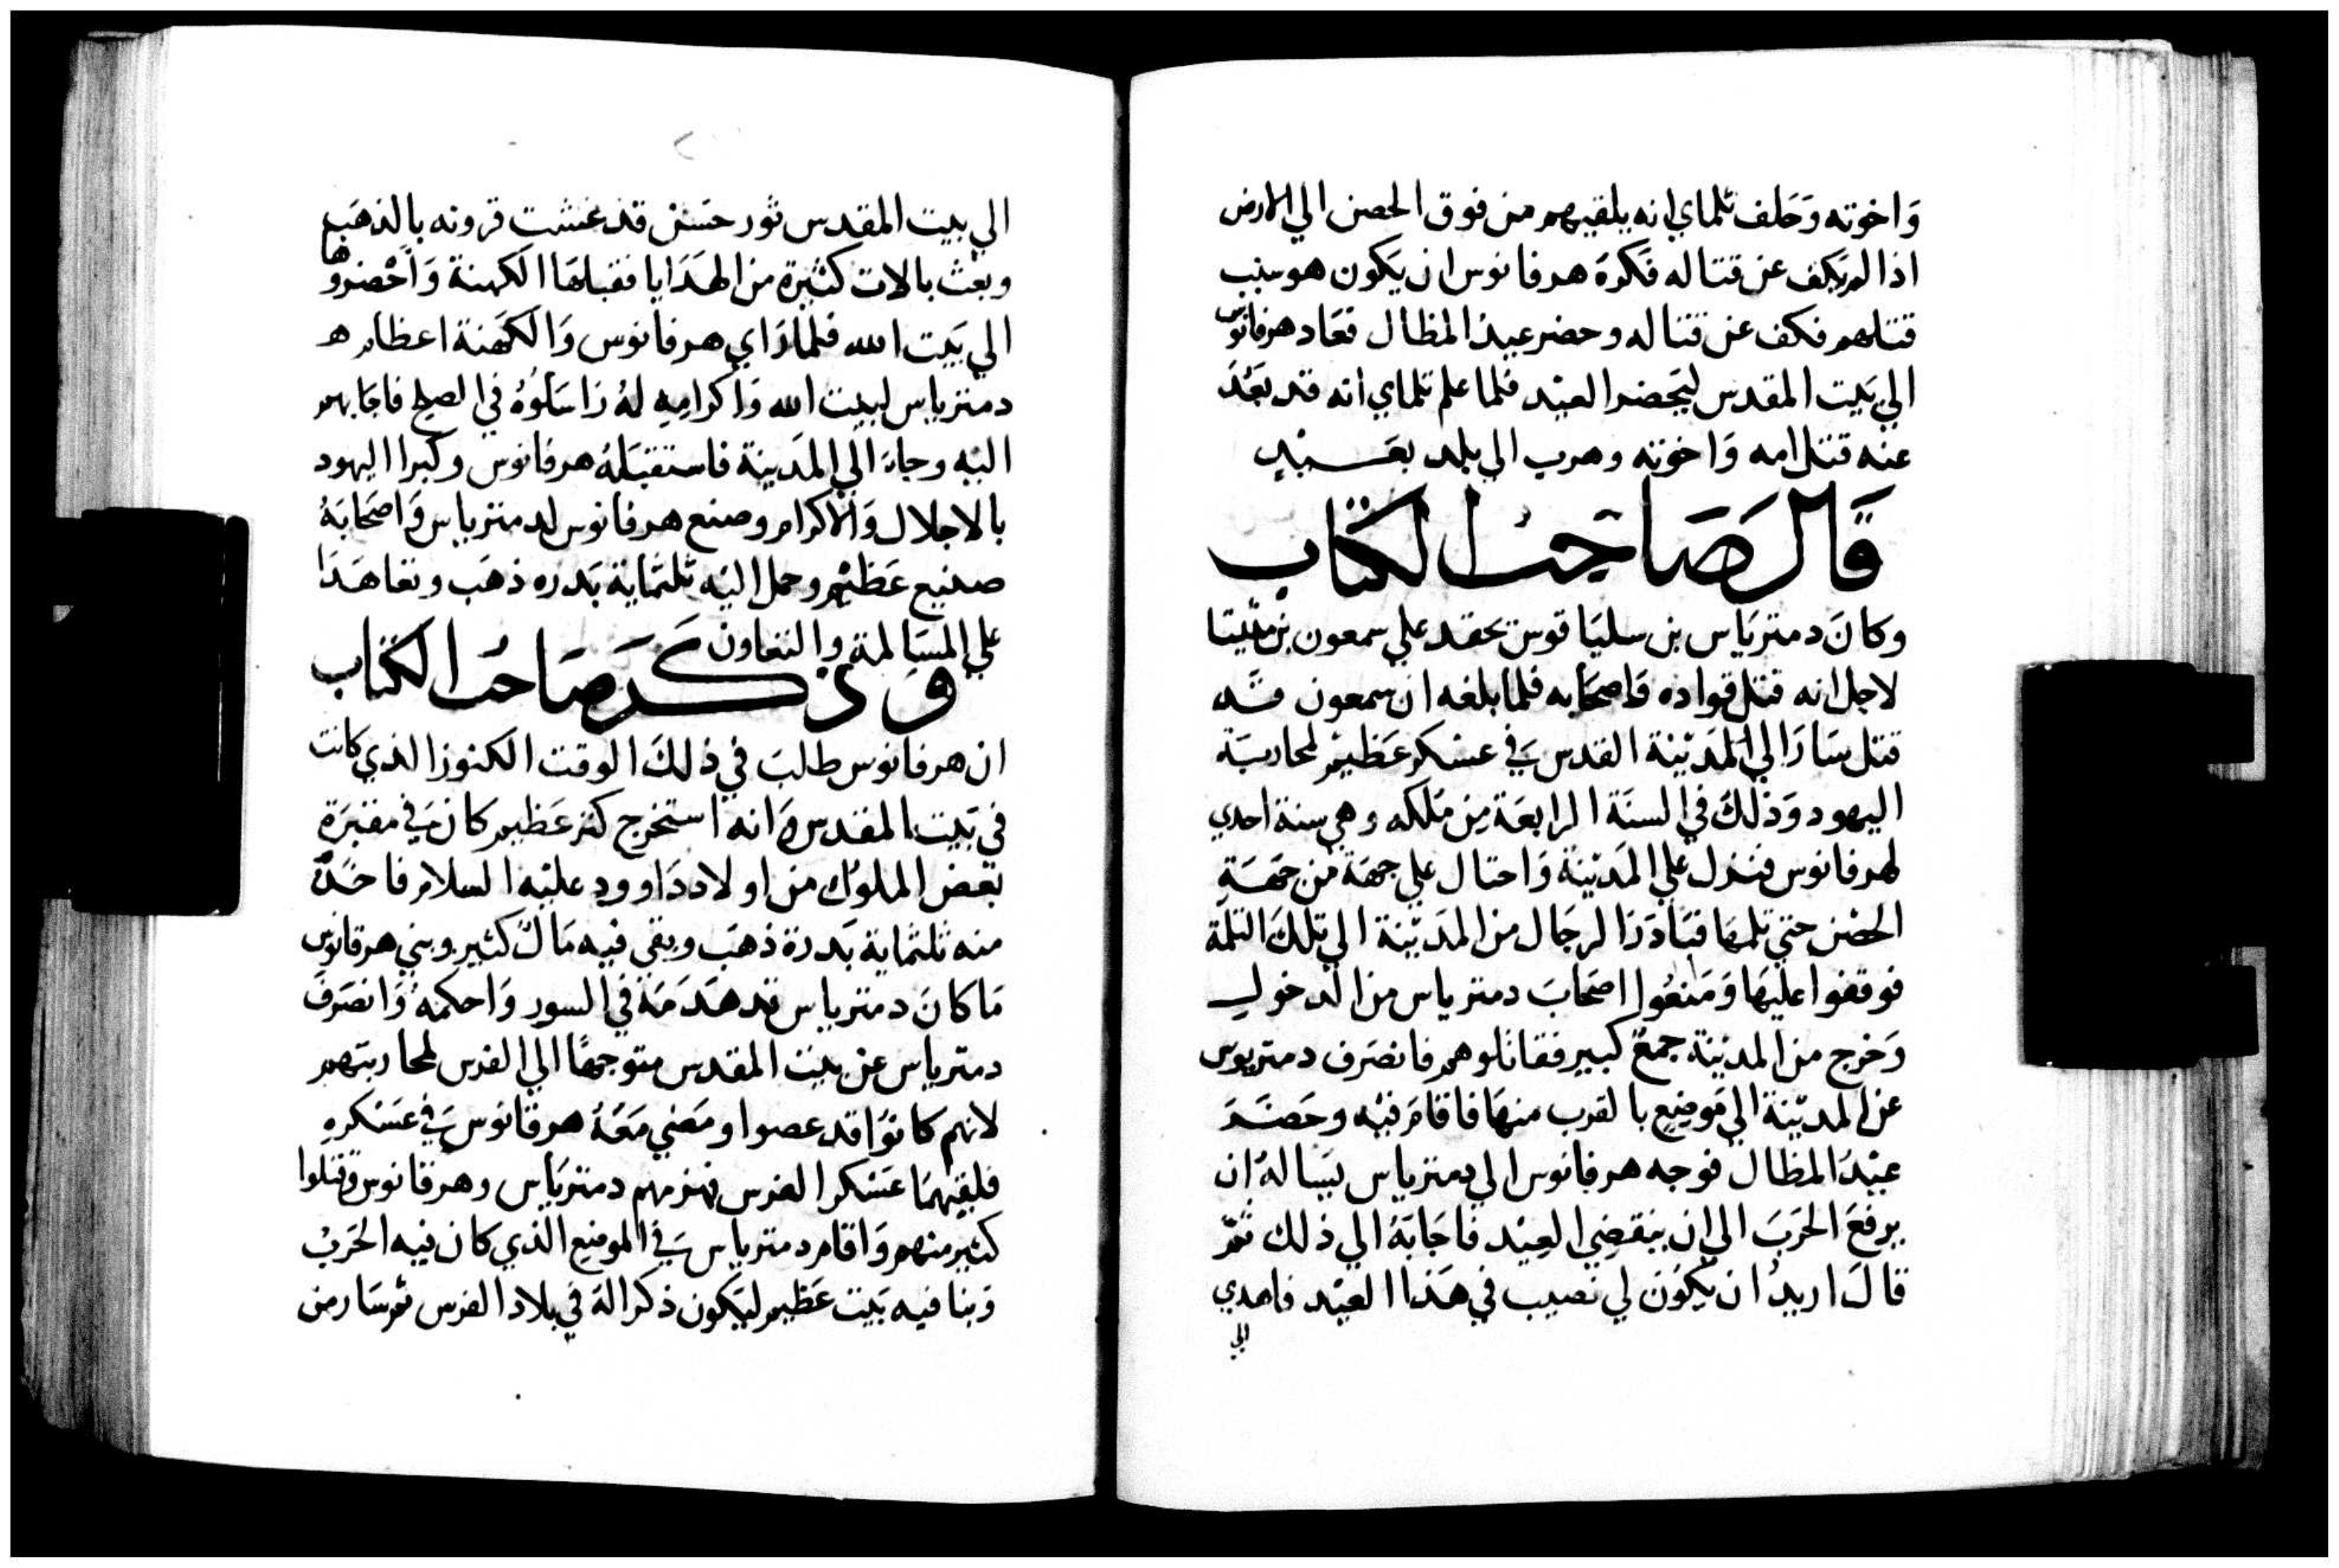 وَاخوته وَحَلف تلماي انه يلقيهم من فوق الحصن الي الارض
اذا لم يكف عن قتاله فكره هرقانوس ان يكون هو سبب
قتلهم فكف عن قتاله وحضر عيد المظال فعَاد هرقانوس
الي بَيت المقدس ليَحضر العيْد فلما علم تلماي انه قد بَعُدَ
عنه قتل امه وَاخوته وهرب الي بلد بعَيْدٍ
قَالَ صَاحِبُ الكتَاب
وكانَ دمتريَاس بن سليَاقوس يحقد علي سمعون بن متيتا
لاجل انه قتل قواده وَاصحَابه فلما بلغه ان سمعون قد
قتل سَارَ الي المَديْنة القدس فَي عسْكر عَظيْم لمحاربَة
اليهود وَذلكَ في السنَة الرابعَة مِن مَلكه وهي سنة احدي
لهرقانوس فنزل عَلي المَديْنة وَاحتال علي جهَة من جهَةِ
الحصْن حتي ثلمهَا فتبَادَرَ الرجَال من المَديْنة الي تلكَ الثلمَة
فوقفوا عليهَا وَمَنعُوا اصحَابَ دمترياس من الدخول
وَخرج من المدينة جمعٌ كبير فقاتلوهم فانصَرف دمتريوس
عن المديْنة الي مَوضِعٍ بالقرب منهَا فاقامَ فيْه وحَضَرَ
عيْدُ المظال فوجه هرقانوس الي دمترياس يسَالهُ ان
يرفعَ الحَربَ الي ان ينقضِي العِيْد فاجَابَهُ الي ذلك ثمّ
قالَ اريدُ ان يَكوُن لي نصيب في هَذا العيْد فاهدي
الي
الي بيت المقدس ثور حسَن قد غشت قرونه بالذهَب
وبعْث بالات كثيْرة من الهدَايا فقبلهَا الكهنة وَاحْضروها
الي بَيت الله فلما رَاي هرقانوس وَالكهَنة اعظام
دمترياس لبيت الله وَاكرامِه لهُ رَاسَلوُهُ في الصلح فاجَابهم
اليْه وجاءَ الي المَدينة فاستقبَلهُ هرقانوس وكبرا اليهود
بالاجلال وَالاكرام وصنع هرقانوس لدمترياس وَاصحَابهُ
صنيع عَظيْم وحمل اليْه ثلثماية بَدره ذهَب وتعاهَدَا
علي المسَالمة والتعاون
وَذكَرَ صَاحبُ الكتاب
ان هرقانوس طلبَ في ذلكَ الوقت الكنوز الذي كانت
في بَيت المقدس وَانه استخرج كنز عَظيم كانَ في مقبرَة
بَعض الملوُك من اولاد دَاوود عليْه السلام فاخَذ
منه ثلثماية بَدرة ذهَب وبقي فيه مَالٌ كثير وبني هرقانوس
مَا كانَ دمترياس قد هدَمَهُ في السور وَاحكمهُ وَانصَرفَ
دمترياس عن بيت المقدس متوجهًا الي الفرس لمحاربتهم
لانهم كانوُا قد عصوا ومَضي مَعَهُ هرقانوس فَي عسْكرهِ
فلقيْهمَا عسْكر الفرس فهزمهم دمتريَاس وهرقانوس وَقتلوا
كثير منهم وَاقام دمترياس فَي الموضِع الذي كان فيه الحَربْ
وَبنا فيه بَيت عَظيم ليَكون ذكرا لهَ في بلاد الفرس ثم سَار من